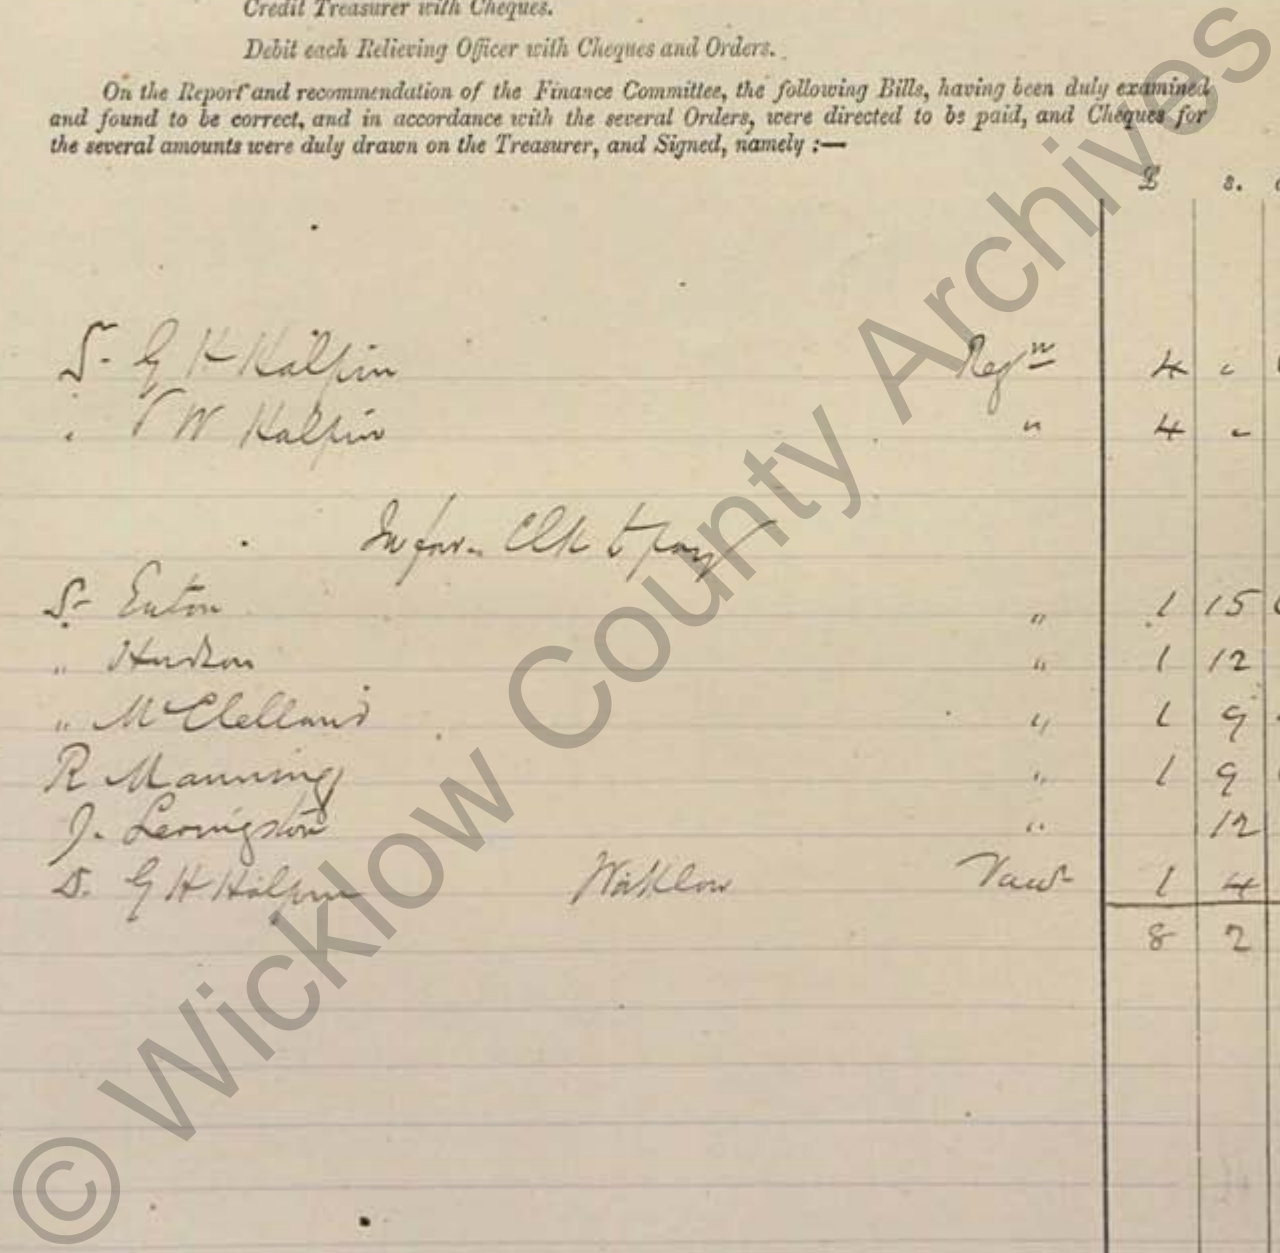 Credit Treasurer with Cheques.
Debit each Relieving Officer with Cheques and Orders.
On the Report and recommendation of the Finance Committee, the following Bills, having been duly examined
and found to be correct, and in accordance with the several Orders, were directed to be paid, and Cheques for
the several amounts were duly drawn on the Treasurer, and Signed, namely :—
£ s.
G H Halpin Regn 4
" W Halpin " 4 -
In fav. Clk to pay
Euton " 1 15
" Hudson " 1 12
" McClelland " 1 9
R Manning " 1 9
J. Levingston " 12
D. G H Halpin Wicklow 1 4
8 2
© Wicklow County Archives